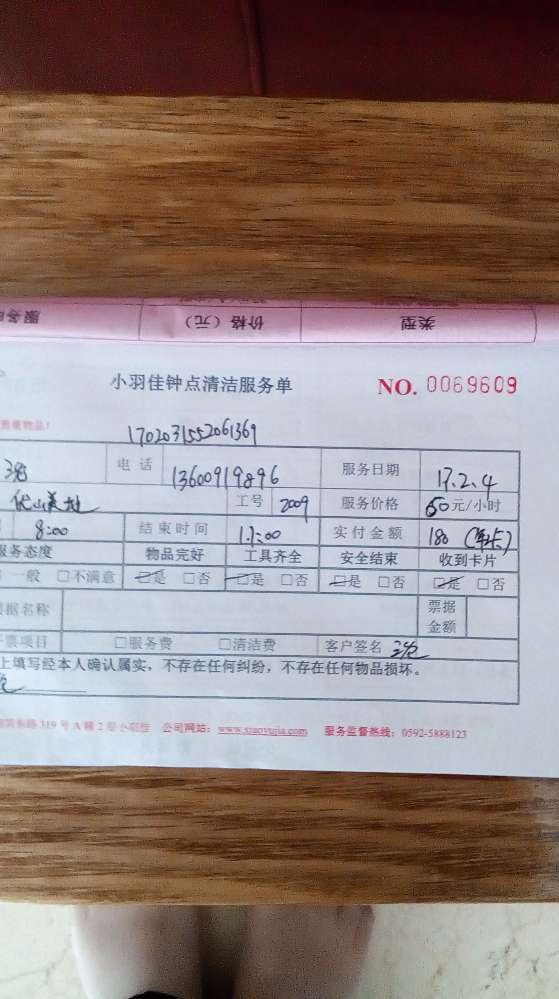 类型 价格（元） 服务
小羽佳钟点清洁服务单 NO. 0069609
贵重物品！
1702031552061369
电话 13600919896 服务日期 17.2.4
工号 2009 服务价格 60元/小时
8:00 结束时间 11:00 实付金额 180（年卡）
服务态度 物品完好 工具齐全 安全结束 收到卡片
一般 □不满意 □是 □否 □是 □否 □是 □否 □是 □否
票据名称 票据金额
开票项目 □服务费 □清洁费 客户签名
上填写经本人确认属实，不存在任何纠纷，不存在任何物品损坏。
319号A幢2 公司网站：www.xiaoyujia.com 服务监督热线：0592-5888123